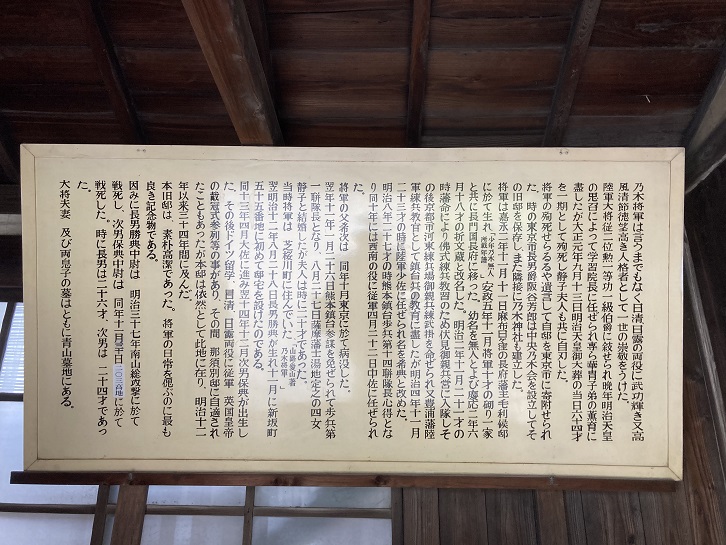 乃木将軍は言うまでもなく日清日露の両役に武功輝き又高
風清節徳望高き人格者として一世の崇敬をうけた。
陸軍大将従二位勲一等功一級伯爵に敍せられ晩年明治天皇
の思召によって学習院長に任ぜられ専ら華胄子弟の薫育に
盡したが大正元年九月十三日明治天皇御大葬の当日六十四才
を一期として殉死し静子夫人も共に自刃した。
将軍の殉死せらるるや遺言して自邸を東京市に寄附せられ
た。時の東京市長男爵阪谷芳郎は中央乃木会を設立してそ
の旧邸を保存しまた隣接に乃木神社を建立した。
将軍は嘉永二年十一月十一日麻布日ケ窪の長府藩主毛利候邸
に於て生れ 安政五年十一月将軍十才の砌り一家
と共に長門国長府に移った。幼名を無人とよび慶応二年六
月十八才の折文蔵と改名した。明治二年十一月二十一才の
時藩命により佛式練兵教習のため伏見御親兵営に入隊しそ
の後京都市河東練兵場御親兵練武掛を命ぜられ又豊浦藩陸
軍練兵教官として鎮台兵の教育に盡したが明治四年十一月
二十三才の時に陸軍少佐に任ぜられ名を希典と改めた。
明治八年二十七才の時熊本鎮台歩兵第十四聯隊長心得とな
り同十年には西南の役に従軍四月二十二日中佐に任ぜられ
た。
将軍の父希次は 同年十月東京に於て病没した。
翌年十一年一月二十六日熊本鎮台参謀を免ぜられて歩兵第
一聯隊長となり、八月二十七日薩摩藩士湯地定之の四女
静子と結婚したが夫人は時に二十才であった。
当時将軍は 芝桜川町に住んでいた 「山路愛山著 乃木将軍」
翌明治十二年八月二十八日長男勝典が生れ十二月に新坂町
五十五番地に初めて邸宅を設けたのである。
同十三年四月大佐に進み翌十四年十二月次男保典が出生し
た。その後ドイツ留学、日清、日露両役に従軍 英国皇帝
の戴冠式参列等の事があり、その間 那須別邸に自適され
たこともあったが本邸は依然として此地に在り、明治十二
年以来三十四年間に及んだ。
本旧邸は、素朴高潔であった。将軍の日常を偲ぶのに最も
良き記念物である。
因みに長男勝典中尉は 明治三十七年南山総攻撃に於て
戦死し、次男保典中尉は 同年十一月三十日二〇三高地に於て
戦死した。時に長男は二十六才。次男は 二十四才であっ
た。
大将夫妻 及び両息子の墓はともに青山墓地にある。